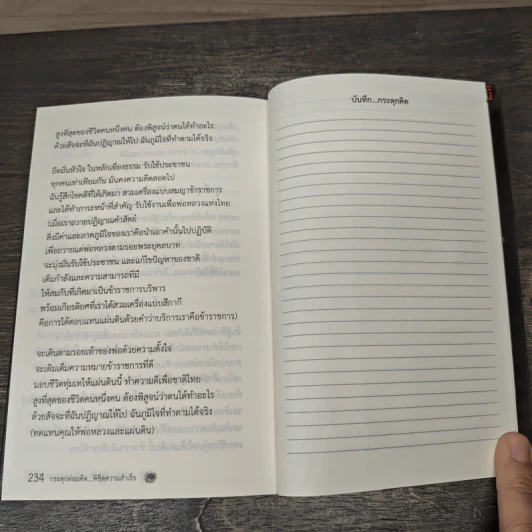 สูงที่สุดของชีวิตคนหนึ่งคน ต้องพิสูจน์ว่าตนได้ทำอะไร
ด้วยสัจจะที่ฉันปฏิญาณให้ไป ฉันภูมิใจที่ทำตามได้จริง
ยึดมั่นหัวใจ ในหลักเที่ยงธรรม รับใช้ประชาชน
ทุกคนเท่าเทียมกัน มั่นคงความดีตลอดไป
ฉันรู้สึกโชคดีที่ได้เกิดมา สวมเครื่องแบบสมญาข้าราชการ
และได้ทำภาระหน้าที่สำคัญ รับใช้งานเพื่อพ่อหลวงแห่งไทย
(เมื่อเราถวายปฏิญาณคำสัตย์
สิ่งมีค่าและภาคภูมิใจของเราคือนำเอาคำนั้นไปปฏิบัติ
เพื่อถวายแด่พ่อหลวงตามรอยพระยุคลบาท
จะมุ่งมั่นรับใช้ประชาชน และแก้ไขปัญหาของชาติ
เต็มกำลังและความสามารถที่มี
ให้สมกับที่เกิดมาเป็นข้าราชการบริพาร
พร้อมเกียรติยศที่เราได้สวมเครื่องแบบสีกากี
คือการได้ตอบแทนแผ่นดินด้วยคำว่าบริการเราคือข้าราชการ)
จะเดินตามรอยเท้าของพ่อด้วยความตั้งใจ
จะเติมเต็มความหมายข้าราชการที่ดี
มอบชีวิตทุ่มเทให้แผ่นดินนี้ ทำความดีเพื่อชาติไทย
สูงที่สุดของชีวิตคนหนึ่งคน ต้องพิสูจน์ว่าตนได้ทำอะไร
ด้วยสัจจะที่ฉันปฏิญาณให้ไป ฉันภูมิใจที่ทำตามได้จริง
(ทดแทนคุณให้พ่อหลวงและแผ่นดิน)
234 กระตุกต่อมคิด...พิชิตความสำเร็จ
บันทึก...กระตุกคิด